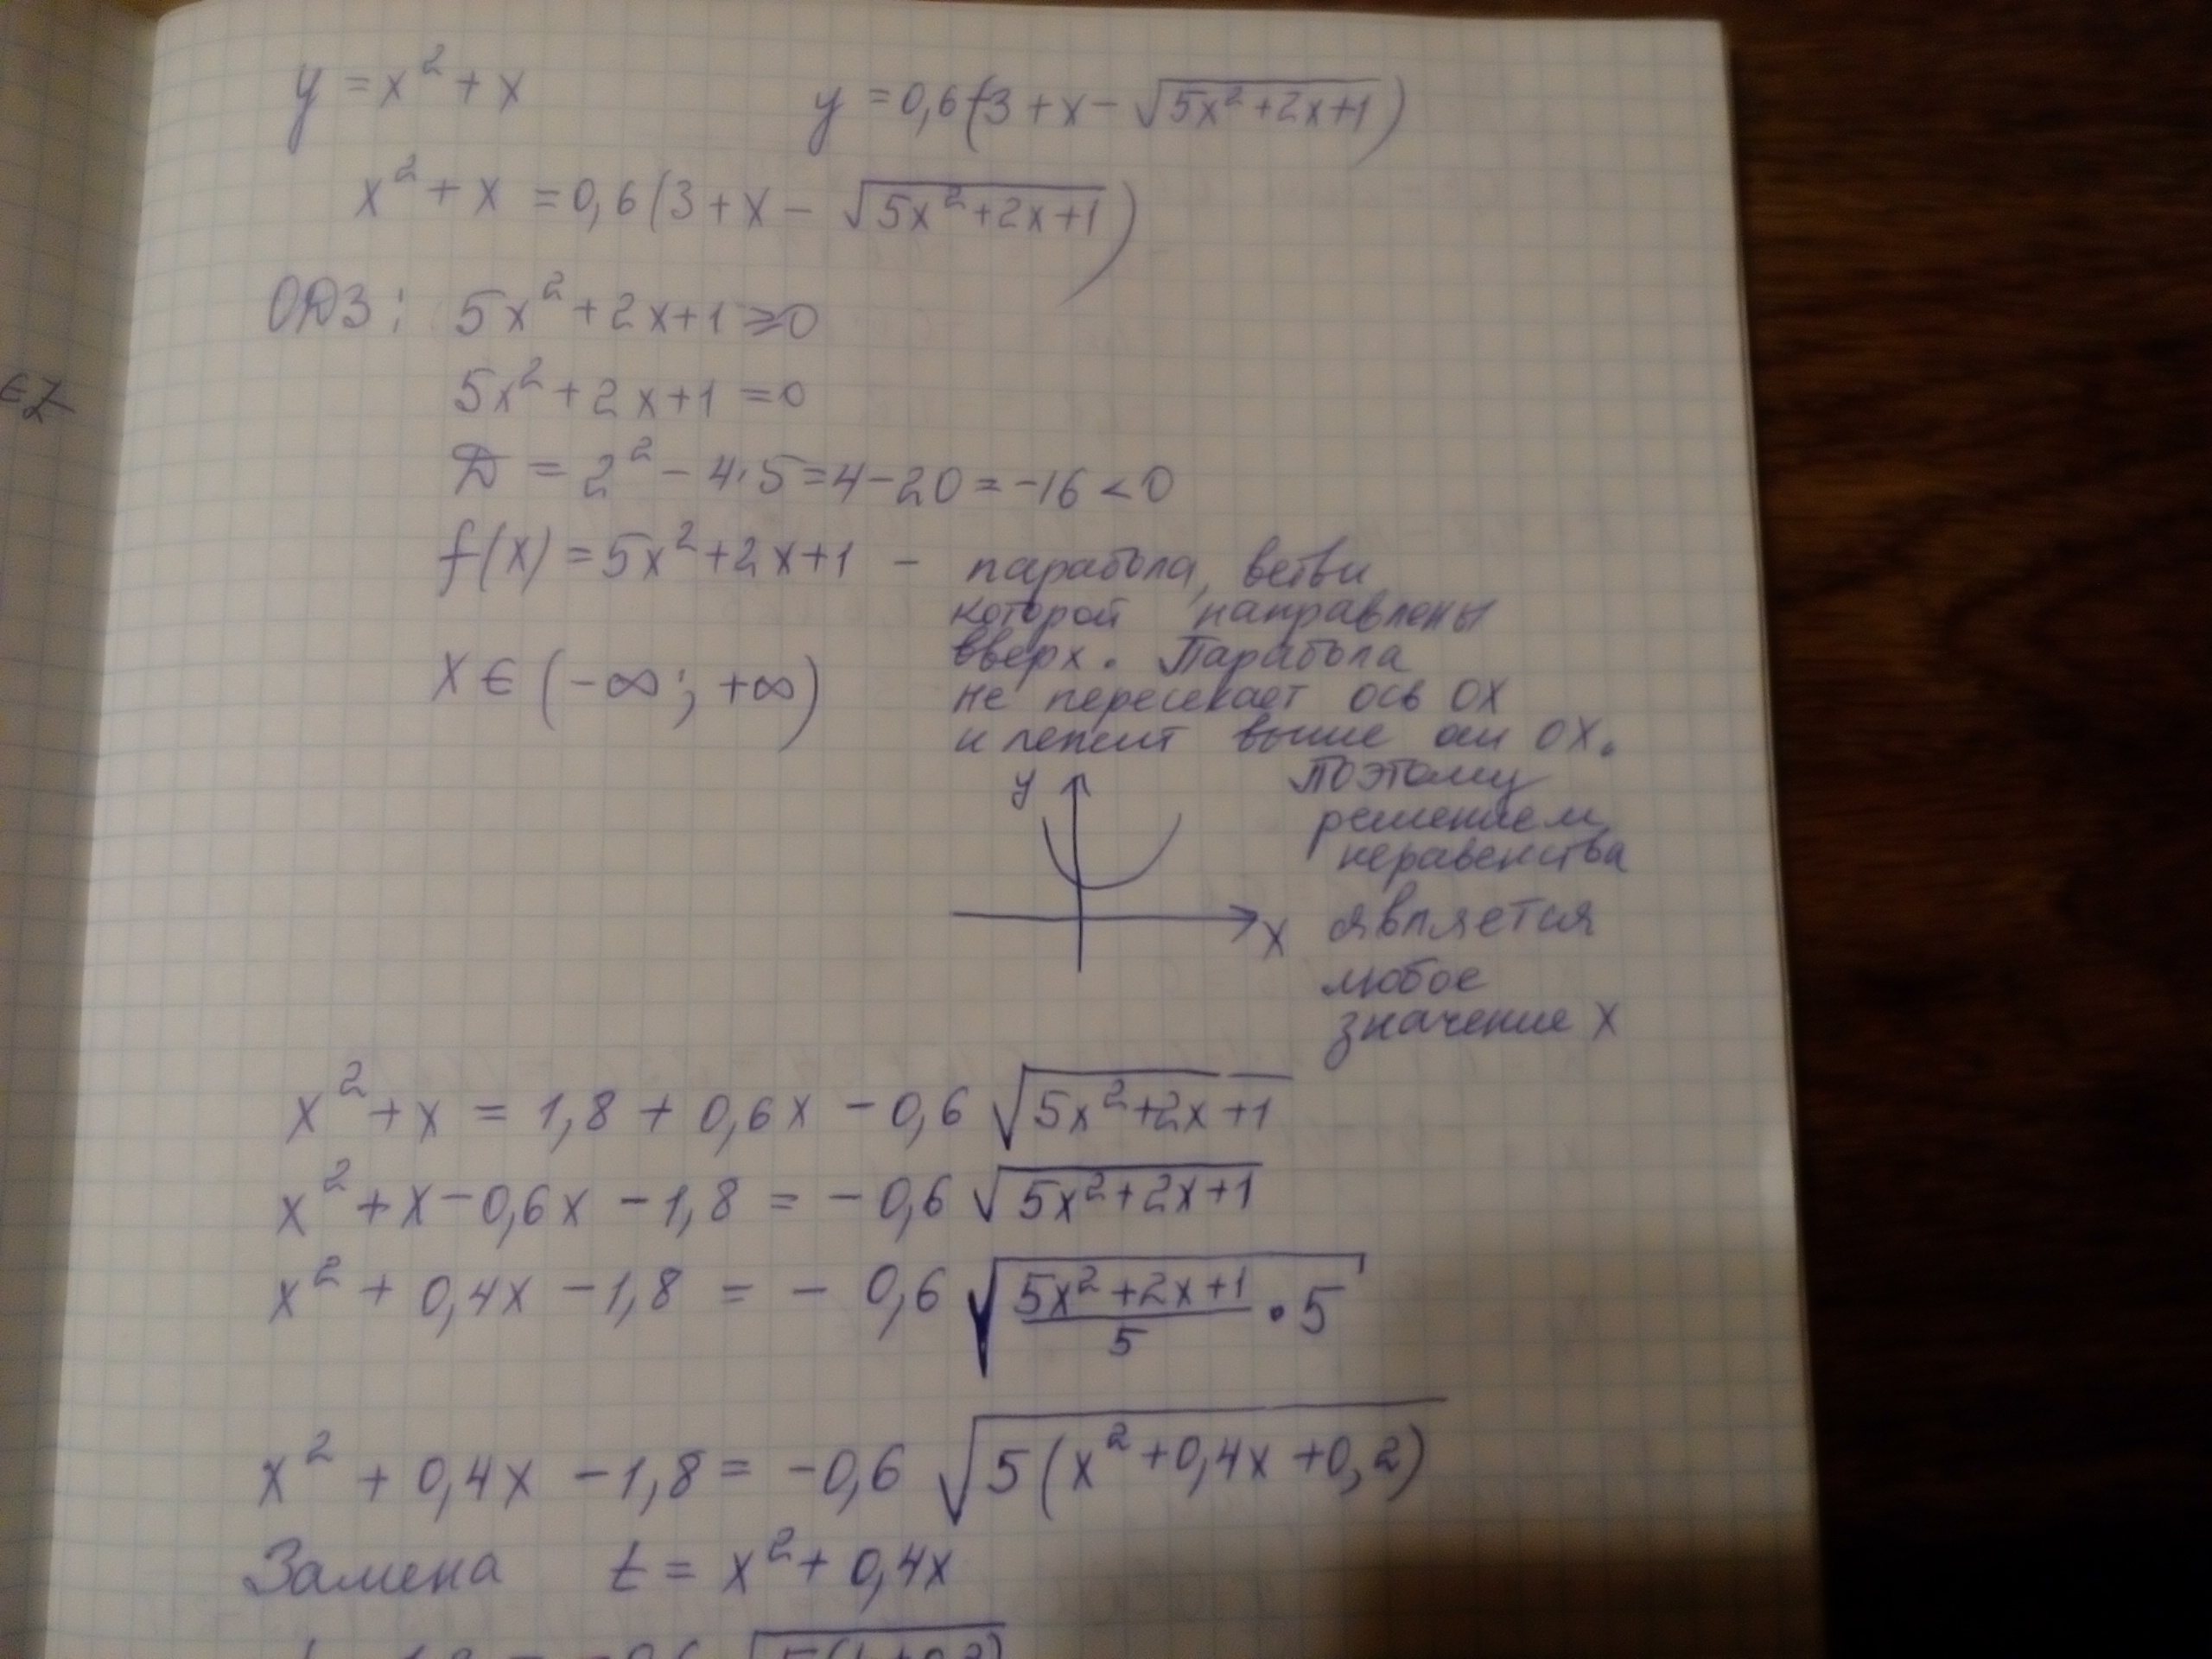 y = x² + x    y = 0,6(3 + x − √(5x² + 2x + 1))
x² + x = 0,6(3 + x − √(5x² + 2x + 1))
ОДЗ: 5x² + 2x + 1 ≥ 0
5x² + 2x + 1 = 0
∈Z
Д = 2² − 4·5 = 4 − 20 = −16 < 0
f(x) = 5x² + 2x + 1 – парабола, ветви
которой направлены
вверх. Парабола
x ∈ (−∞; +∞)
не пересекает ось OX
и лежит выше оси OX.
y
Поэтому
решением
неравенства
x
является
любое
значение x
x² + x = 1,8 + 0,6x − 0,6 √(5x² + 2x + 1)
x² + x − 0,6x − 1,8 = − 0,6 √(5x² + 2x + 1)
x² + 0,4x − 1,8 = − 0,6 √((5x² + 2x + 1)/5 · 5)
x² + 0,4x − 1,8 = −0,6 √(5(x² + 0,4x + 0,2))
Замена t = x² + 0,4x